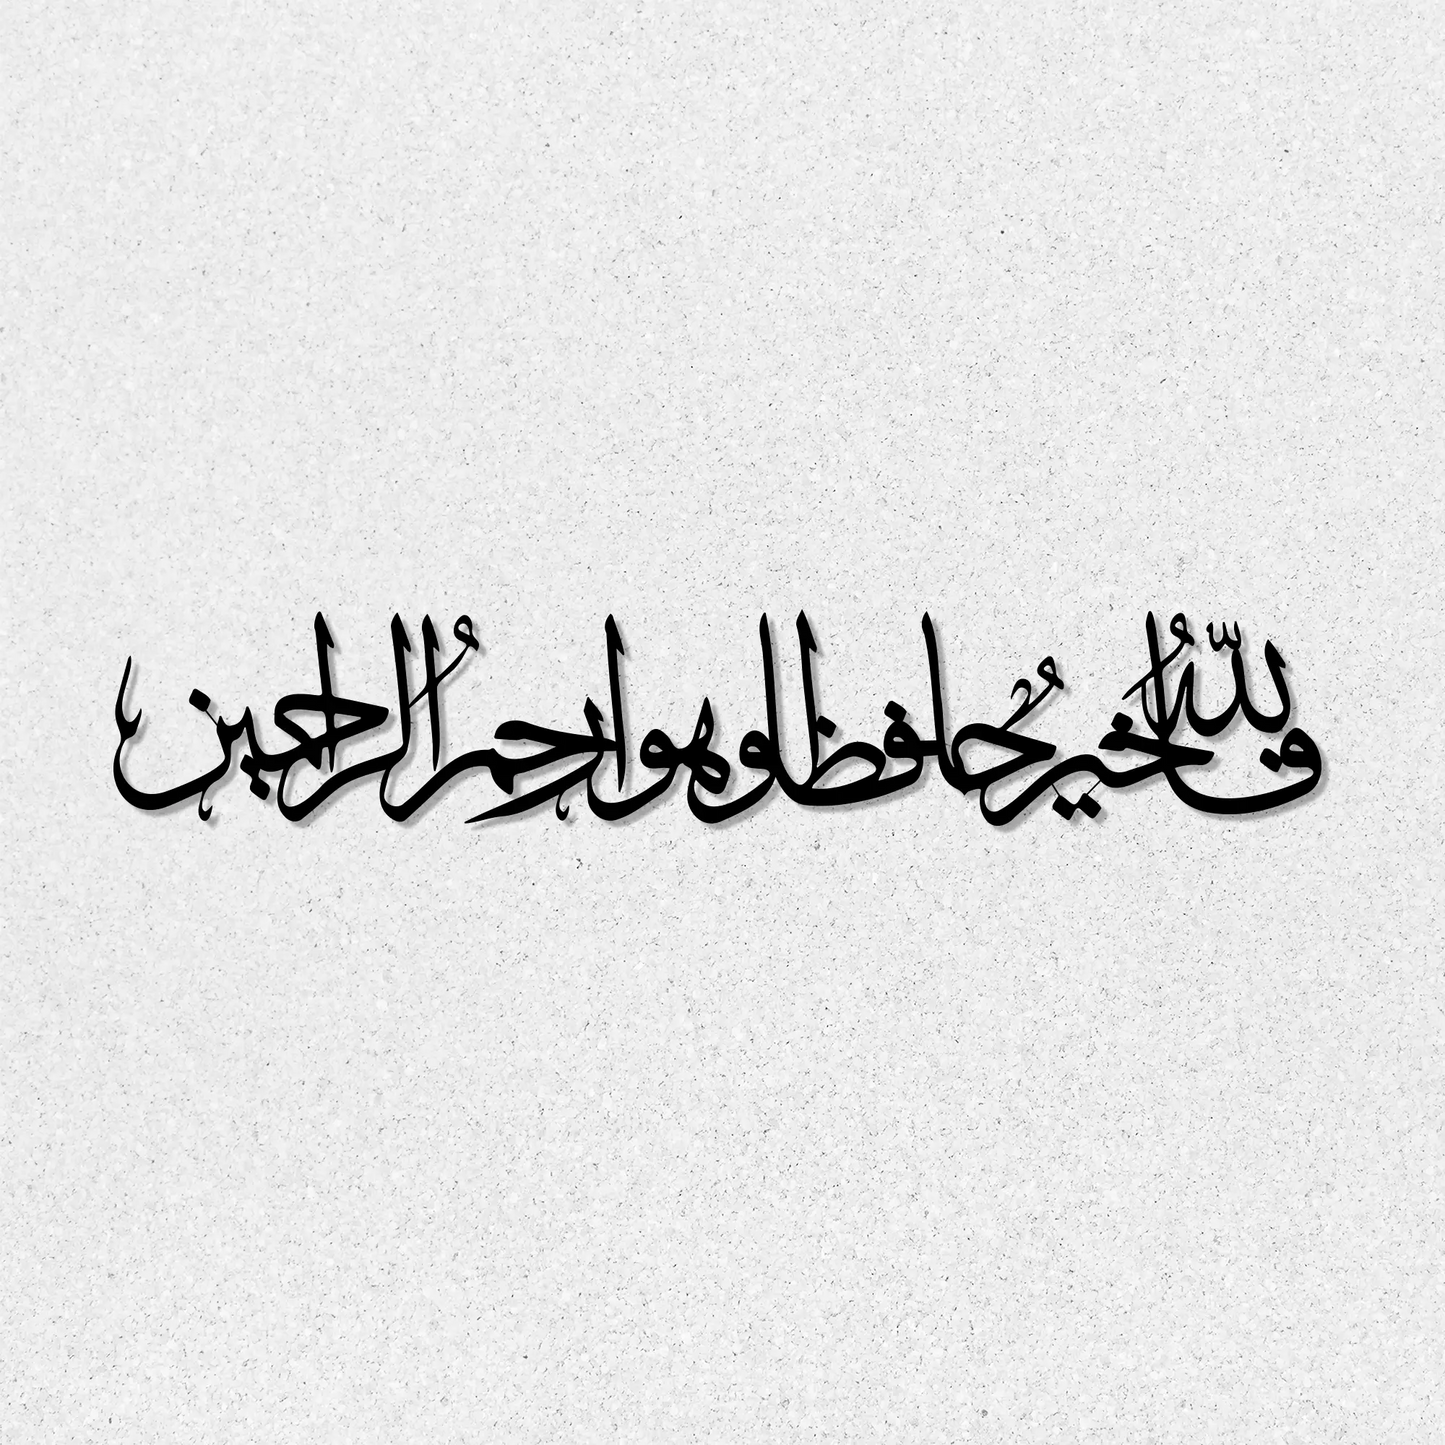 فالله خيرٌ حافظا وهو ارحمُ الراحمين